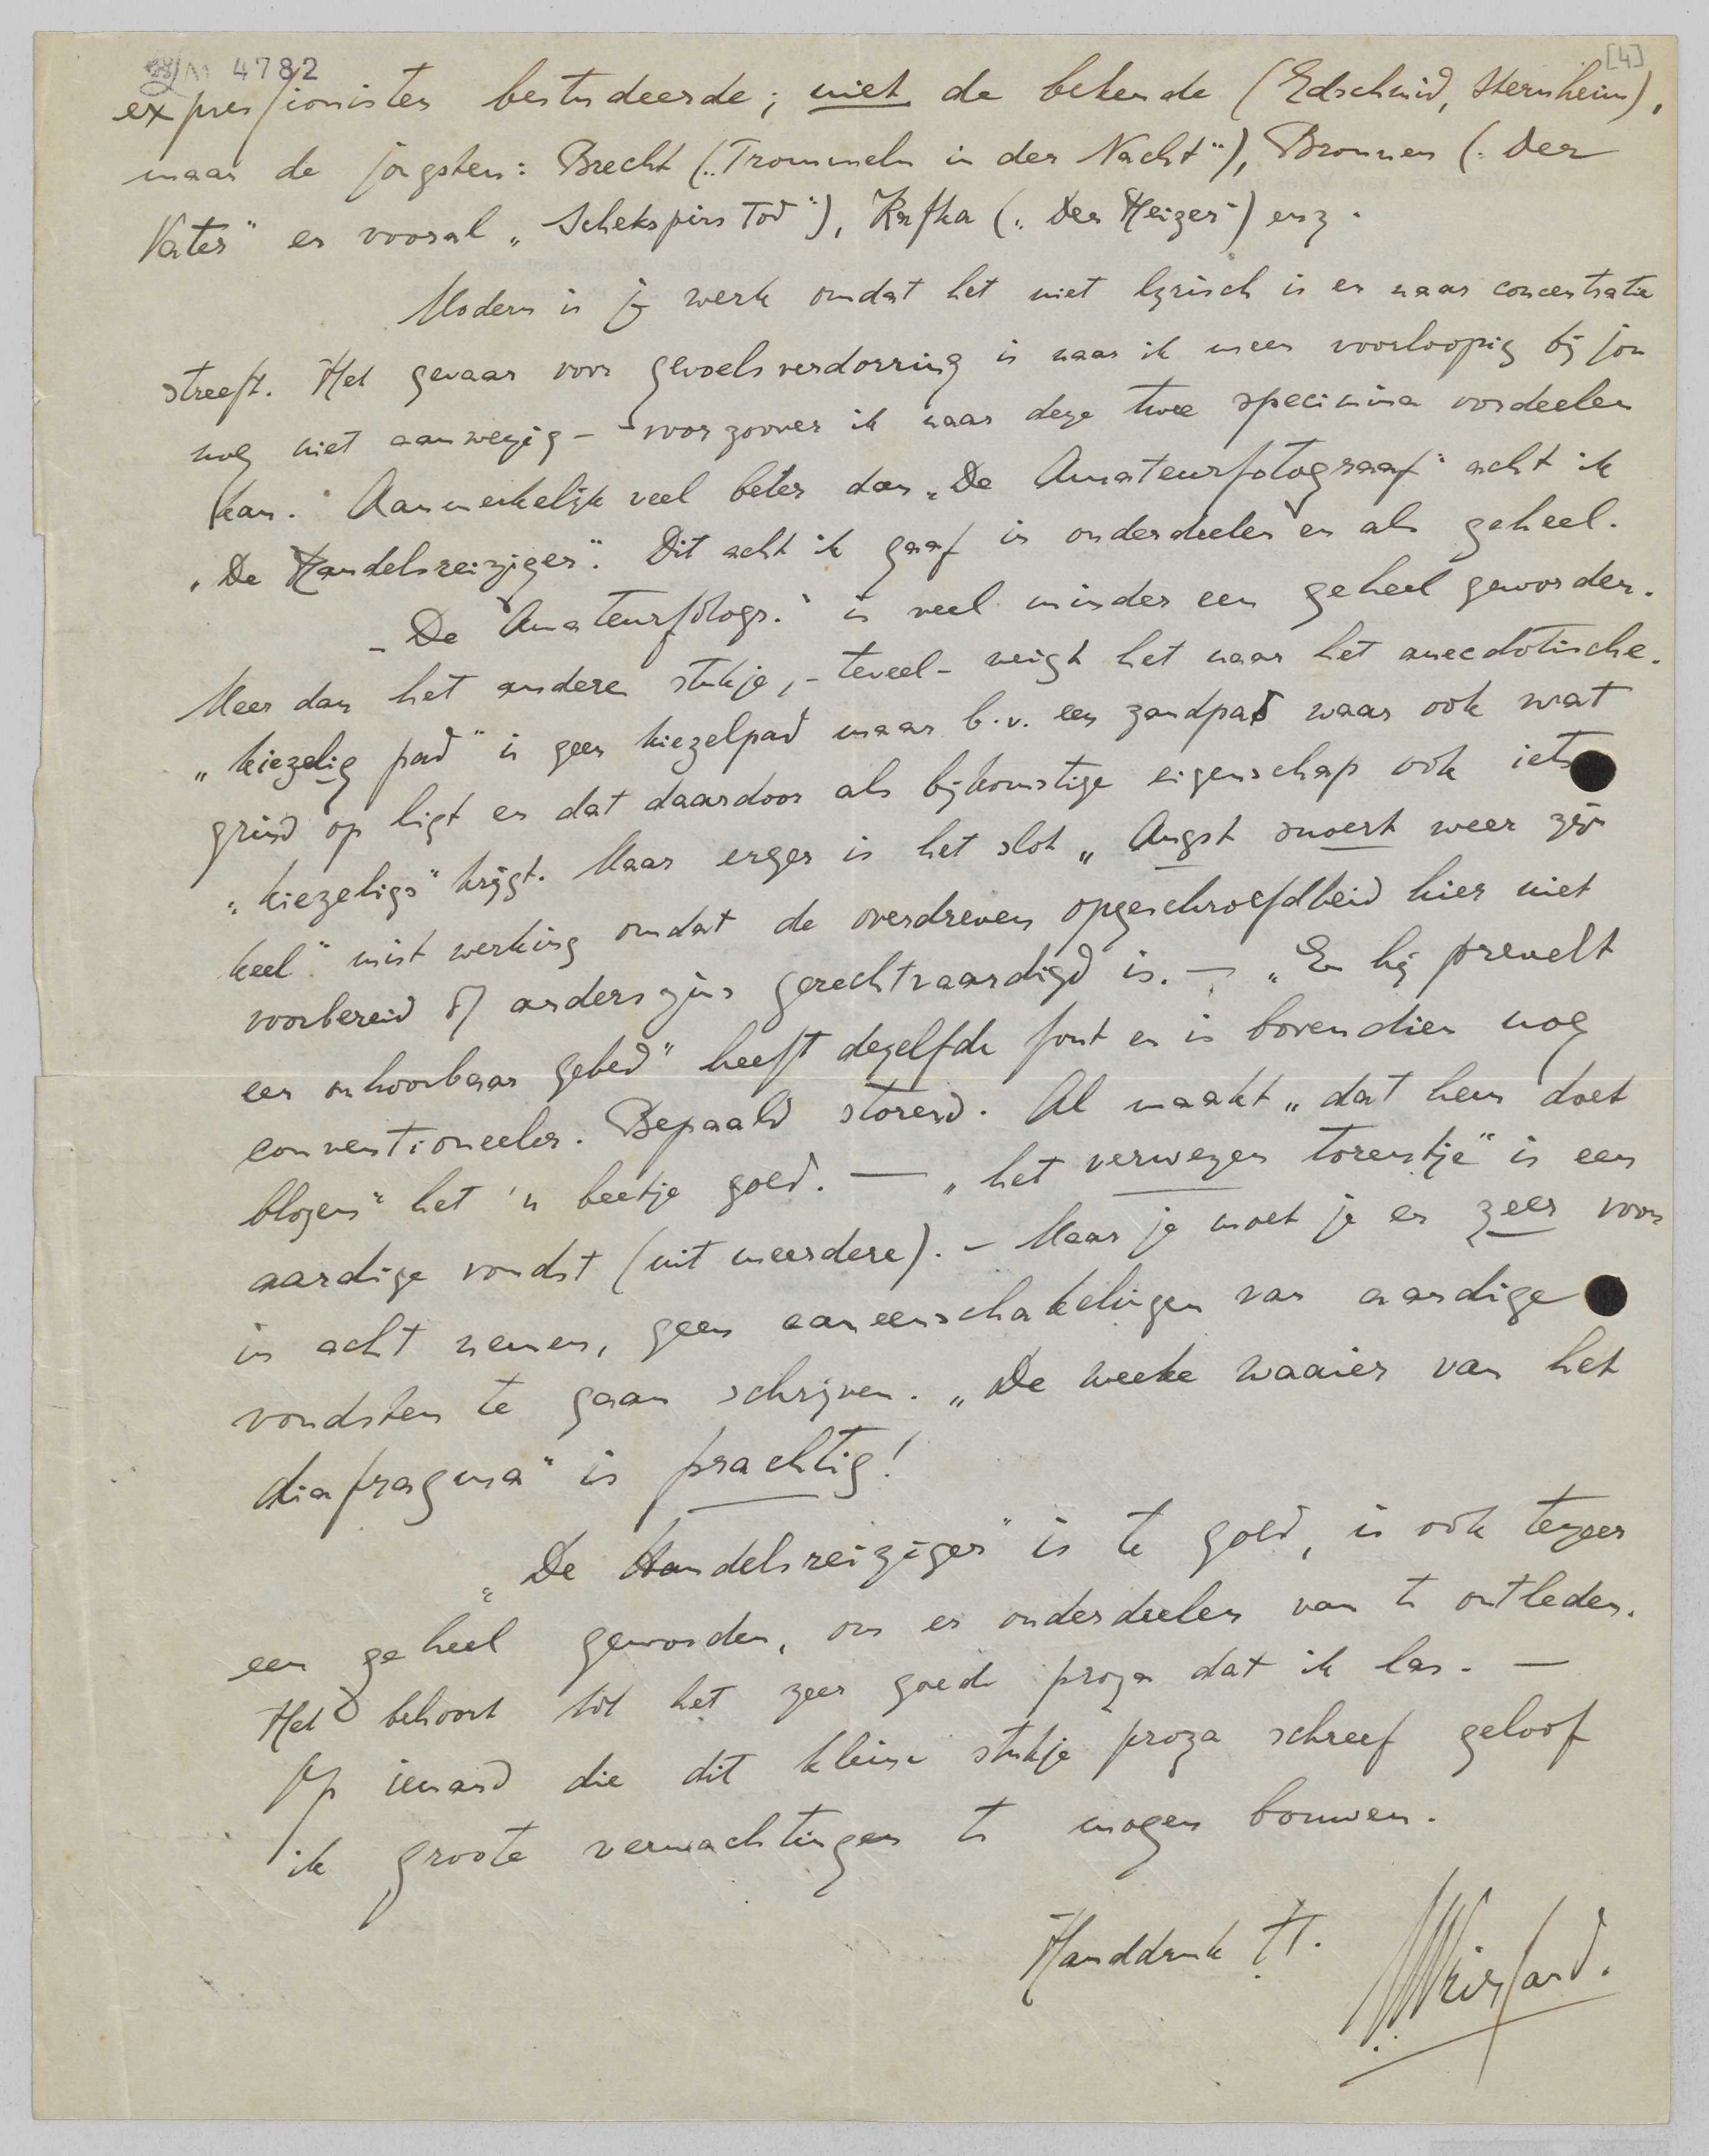 M 4782
[4]
expressionisten bestudeerde; niet de bekende (Edschmid, Sternheim),
maar de jongsten: Brecht („Trommeln in der Nacht"), Bronnen („Der
Vater" en vooral „Schekspirs Tod"), Kafka („Der Heizer") enz.
Modern is je werk omdat het niet lyrisch is en naar concentratie
streeft. Het gevaar voor gevoelsverdorring is naar ik meen voorloopig bij jou
nog niet aanwezig – voorzoover ik naar deze twee specimina oordeelen
kan. Aanmerkelijk veel beter dan „De Amateurfotograaf" acht ik
„De Handelsreiziger". Dit acht ik gaaf in onderdeelen en als geheel.
– „De Amateurfotogr." is veel minder een geheel geworden.
Meer dan het andere stukje, – teveel – neigt het naar het anecdotische.
„kiezelig pad" is geen kiezelpad maar b.v. een zandpad waar ook wat
grind op ligt en dat daardoor als bijkomstige eigenschap ook iets
„kiezeligs" krijgt. Maar erger is het slot „Angst snoert weer zijn
keel" mist werking omdat de overdreven opgeschroefdheid hier niet
voorbereid of anderszins gerechtvaardigd is. – „En hij prevelt
een onhoorbaar gebed" heeft dezelfde fout en is bovendien nog
conventioneeler. Bepaald storend. Al maakt „dat hem doet
blozen" het 'n beetje goed. — „het verwezen torentje" is een
aardige vondst (uit meerdere). – Maar je moet je er zeer voor
in acht nemen, geen aaneenschakelingen van aardige
vondsten te gaan schrijven. „De weeke waaier van het
diafragma" is prachtig!
„De Handelsreiziger" is te goed, is ook tezeer
een geheel geworden, om er onderdeelen van te ontleden.
Het behoort tot het zeer goede proza dat ik las. —
Op iemand die dit kleine stukje proza schreef geloof
ik groote verwachtingen te mogen bouwen.
Handdruk tt.
Vriesland.